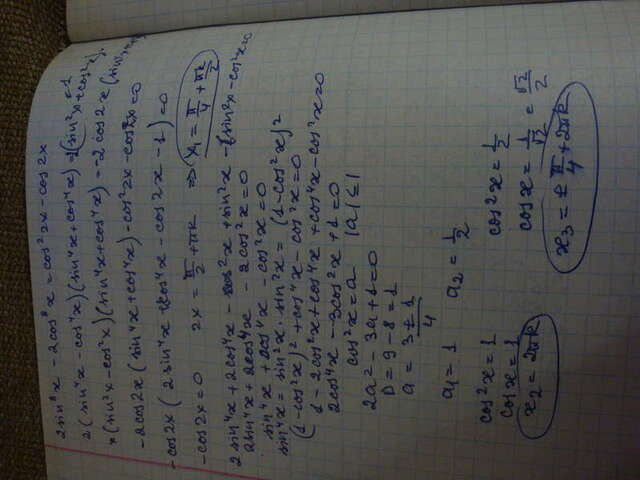 2sin⁸x - 2cos⁸x = cos²2x - cos2x
2(sin⁴x - cos⁴x)(sin⁴x + cos⁴x)
(sin²x - cos²x)(sin⁴x + cos⁴x) - 2cos2x
-2cos2x(sin⁴x + cos⁴x) - cos²2x - cos2x = 0
-cos2x(2sin⁴x + 2cos⁴x - cos2x - 1) = 0
-cos2x = 0 2x = π/2 + πk ⇒ x₁ = π/4 + πk/2
2sin⁴x + 2cos⁴x - cos²x + sin²x - (sin²x - cos²x = 0
2sin⁴x + 2cos⁴x - 2cos²x = 0
sin⁴x + cos⁴x - cos²x = 0
sin⁴x = sin²x · sin²x = (1 - cos²x)²
(1 - cos²x)² + cos⁴x - cos²x = 0
1 - 2cos²x + cos⁴x + cos⁴x - cos²x = 0
2cos⁴x - 3cos²x + 1 = 0
cos²x = a |a| ≤ 1
2a² - 3a + 1 = 0
D = 9 - 8 = 1
a = (3 ± 1)/4
a₁ = 1 a₂ = 1/2
cos²x = 1 cos²x = 1/2
cosx = 1 cosx = 1/√2 = √2/2
x₂ = 2πk x₃ = ± π/4 + 2πk